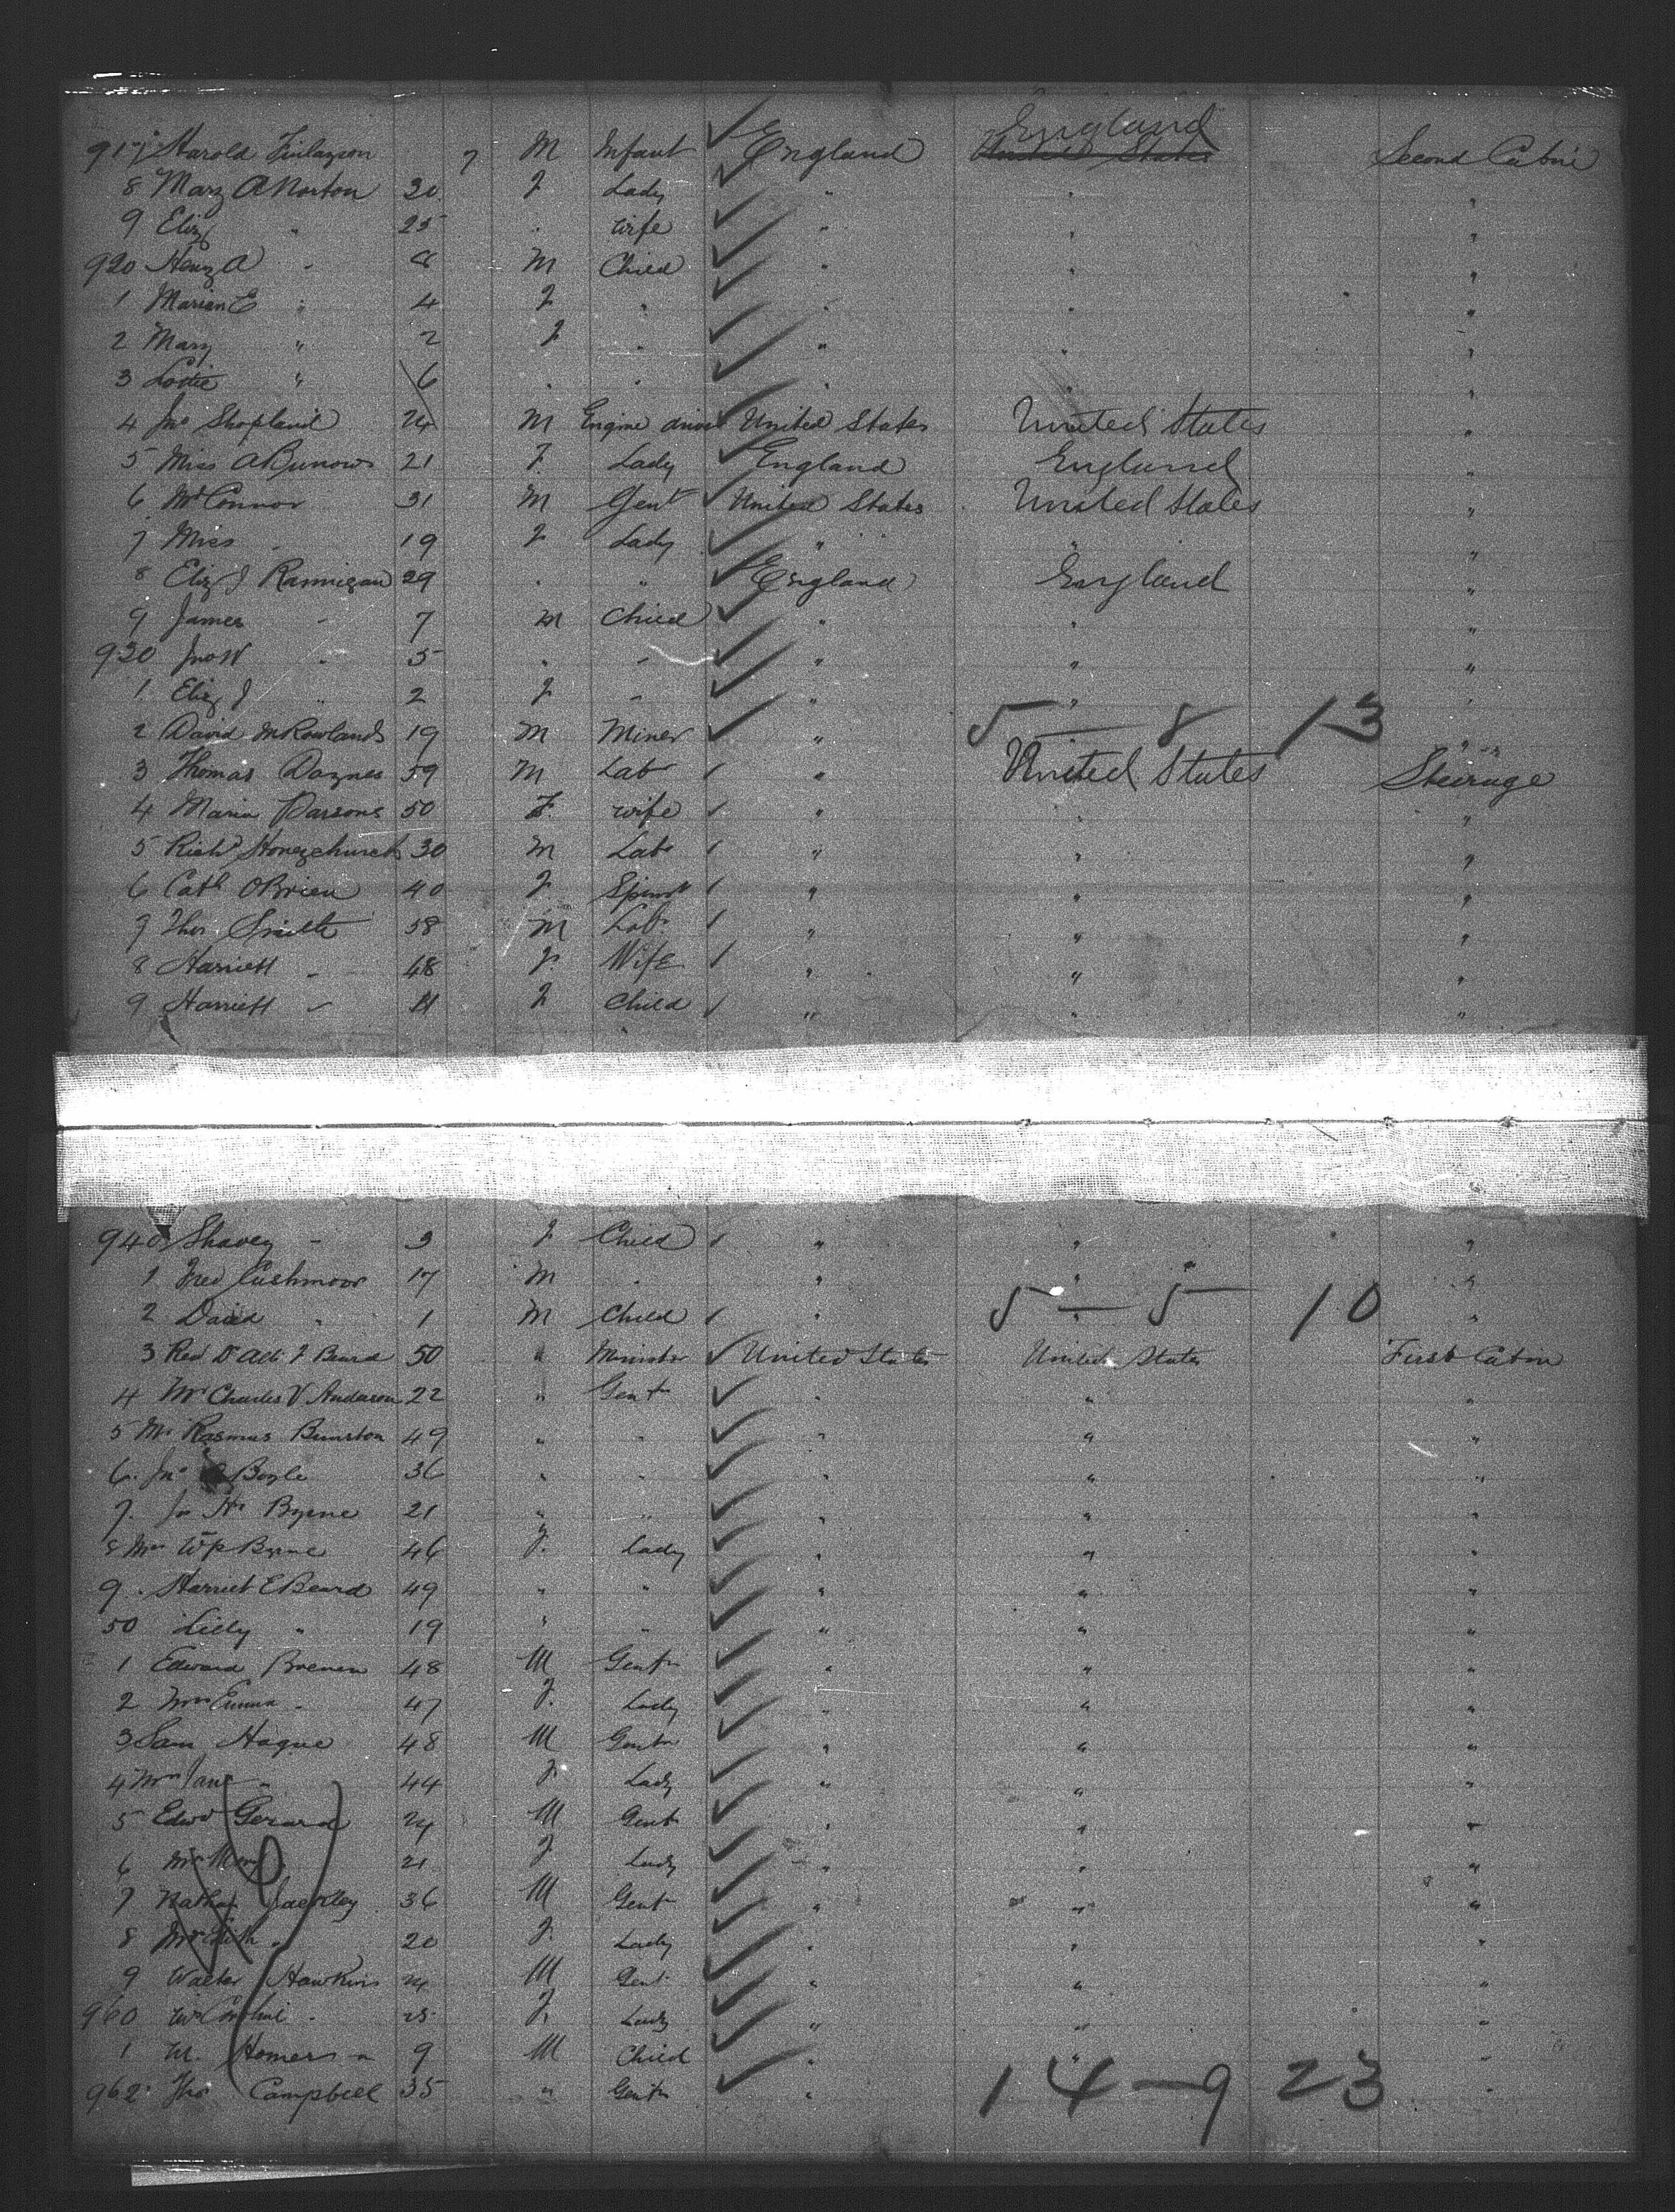 England
917 Harold Finlayson 7 M Infant England United States Second Cabin
8 Mary A Norton 30 F Lady " " "
9 Eliz " 25 " wife " " "
920 Henry A " 8 M Child " " "
1 Marian E " 4 F " " " "
2 Mary " 2 F " " " "
3 Lottie " 6 " " " " "
4 Jno Shopland 24 M Engine driver United States United States "
5 Miss A Bunows 21 F Lady England England "
6 Mr Connor 31 M Gent United States United States "
7 Miss " 19 F Lady " " "
8 Eliz J Rannigan 29 " " England England "
9 James " 7 M Child " " "
930 Jno W " 5 " " " " "
1 Eliz J " 2 F " " " "
2 David M Rowlands 19 M Miner " 5 - 8 13 "
3 Thomas Daynes 59 M Lab " United States Steerage
4 Maria Parsons 50 F wife " " "
5 Richd Honeychurch 30 M Lab " " "
6 Cath OBrien 40 F Spinst " " "
7 Thos Smith 58 M Lab " " "
8 Harriett " 48 F Wife " " "
9 Harriett " 11 F Child " " "
940 " 3 F Child " " "
1 Fred Cushmoor 17 M " " " "
2 David " 1 M Child " 5 - 5 10 "
3 Rev Dr F Beard 50 " Minister United States United States First Cabin
4 Mr Charles V Anderson 22 " Gent " " "
5 Mr Rasmus 49 " " " " "
6 Jno Boyle 36 " " " " "
7 Jo Hy Byrne 21 " " " " "
8 Mrs Byrne 46 F Lady " " "
9 Harriet E Beard 49 " " " " "
50 Lilly " 19 " " " " "
1 Edward Brenen 48 M Gentn " " "
2 Mrs Emma " 47 F Lady " " "
3 Sam Hague 48 M Gentn " " "
4 Mrs Jane " 44 F Lady " " "
5 Edwd Gerard 24 M Gent " " "
6 Mrs Mary " 21 F Lady " " "
7 Nathan 36 M Gent " " "
8 Mrs " 20 F Lady " " "
9 Walter Hawkins 24 M Gent " " "
960 " 25 F Lady " " "
1 Homer " 9 M Child " " "
962 Thos Campbell 35 " Gentn " 14 - 9 23 "